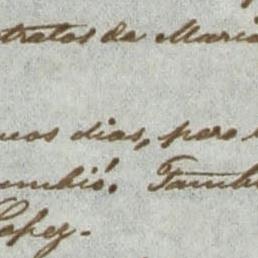 tratos de Maria
uos dias, pero
umbió. Tambi
Lopez.